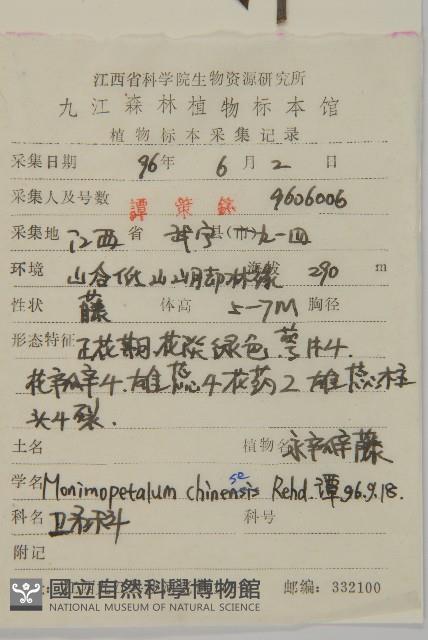 江西省科学院生物资源研究所
九江森林植物标本馆
植物标本采集记录
采集日期 96年 6月 2日
采集人及号数 譚策銘 9606006
采集地 江西省 武宁县(市)九一四
环境 山谷低山山脚林缘 海拔 290 m
性状 藤 体高 5-7M 胸径
形态特征 正花期.花淡绿色.萼片4.
花瓣4.雄蕊4花药2.雌蕊柱
头4裂.
土名 植物名 永瓣藤
学名 Monimopetalum chinensis se Rehd. 譚.96.9.18.
科名 卫矛科 科号
附记
國立自然科學博物館
NATIONAL MUSEUM OF NATURAL SCIENCE
邮编: 332100